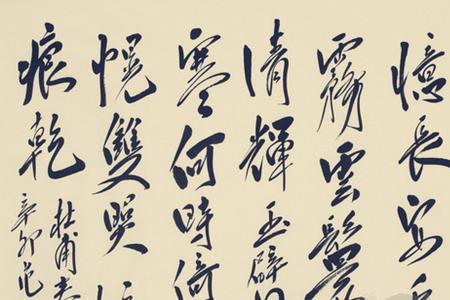 憶長安
霧雲鬟
清輝玉臂
寒何時倚
幌雙照
痕乾
杜甫
辛卯